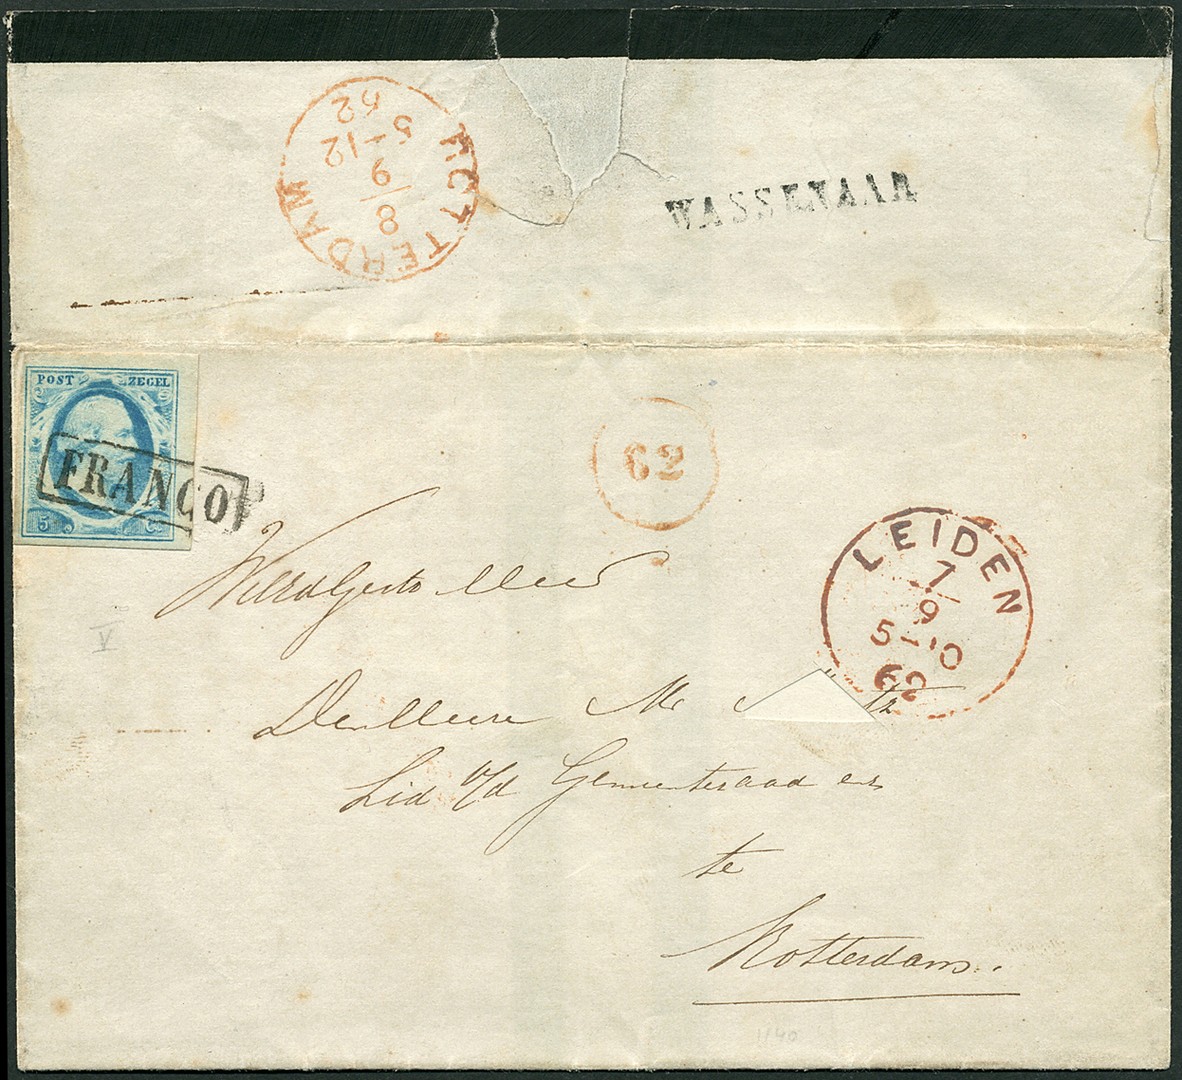 ROTTERDAM
8/9
5-12
52
WASSENAAR
POST ZEGEL
5 Ct
FRANCO
62
LEIDEN
7/9
5-10
62
Den Heere M
Lid v/d Gemeenteraad en
te
Rotterdam.
V
1140